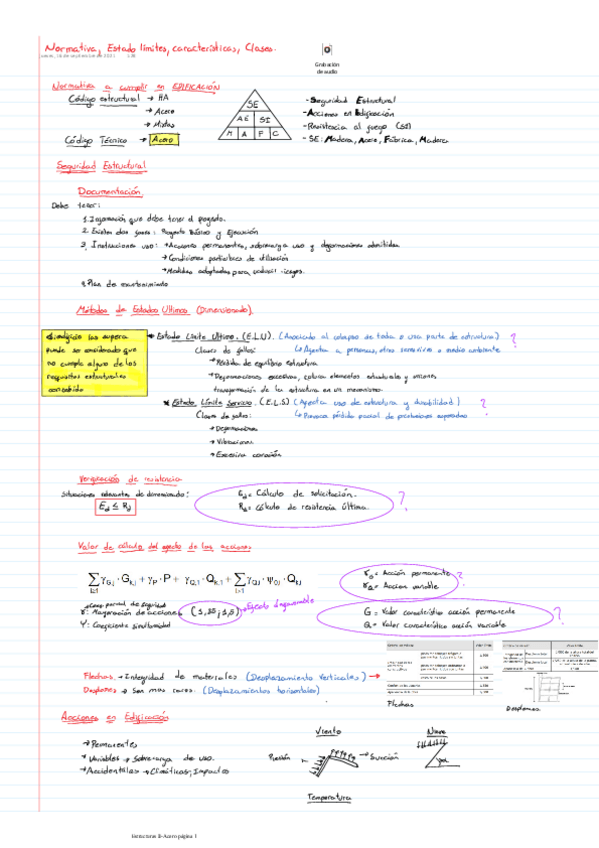 Normativa, Estado límites, características, Clases.
Grabación
de audio
Normativa a cumplir en EDIFICACIÓN
Código estructural → HA
→ Acero
→ Mixtas
Código Técnico → Acero
SE
AE SI
M A F C
- Seguridad Estructural
- Acciones en Edificación
- Resistencia al fuego (SI)
- SE: Madera, Acero, Fábrica, Madera
Seguridad Estructural
Documentación
Debe tener:
1. Información que debe tener el proyecto.
2. Existen dos fases: Proyecto Básico y Ejecución
3. Instrucciones uso: → Acciones permanentes, sobrecarga uso y deformaciones admitidas
→ Condiciones particulares de utilización
→ Medidas adoptadas para reducir riesgos.
4. Plan de mantenimiento
Métodos de Estados Últimos (Dimensionado)
Si edificio los supera
puede ser considerado que
no cumple alguno de los
requisitos estructurales
concebido
* Estado Límite Último. (E.L.U). (Asociado al colapso de toda o una parte de estructura) ?
Clases de fallos: ↳ Afecta a personas, otros servicios o medio ambiente
→ Pérdida de equilibrio estructura
→ Deformaciones excesivas, rotura elementos estructurales y uniones,
transformación de la estructura en un mecanismo.
* Estado Límite Servicio. (E.L.S) (Afecta uso de estructura y durabilidad) ?
Clases de fallos: ↳ Provoca pérdida parcial de prestaciones esperadas
→ Deformaciones
→ Vibraciones
→ Excesiva corrosión
Verificación de resistencia
Situaciones relevantes de dimensionado:
Ed ≤ Rd
Ed = Cálculo de solicitación.
Rd = cálculo de resistencia última. ?
Valor de cálculo del efecto de las acciones
∑ γG,j · Gk,j + γP · P + γQ,1 · Qk,1 + ∑ γQ,i · ψ0,i · Qk,i
j≥1 i>1
γG = Acción permanente
γQ = Acción variable ?
Coef. parcial de seguridad
γ: Mayoración de acciones (1,35; 1,5) → Efecto desfavorable
Ψ: Coeficiente simultaneidad
G = Valor característico acción permanente
Q = Valor característico acción variable ?
Flechas → Integridad de materiales (Desplazamiento verticales) →
Desplomes → Son mas raros. (Desplazamientos horizontales)
Flechas
Desplomes
Acciones en Edificación
→ Permanentes
→ Variables → Sobrecarga de uso.
→ Accidentales → Climáticas; Impactos
Viento
Presión
→ Succión
Nieve
Temperatura
Estructuras II-Acero página 1